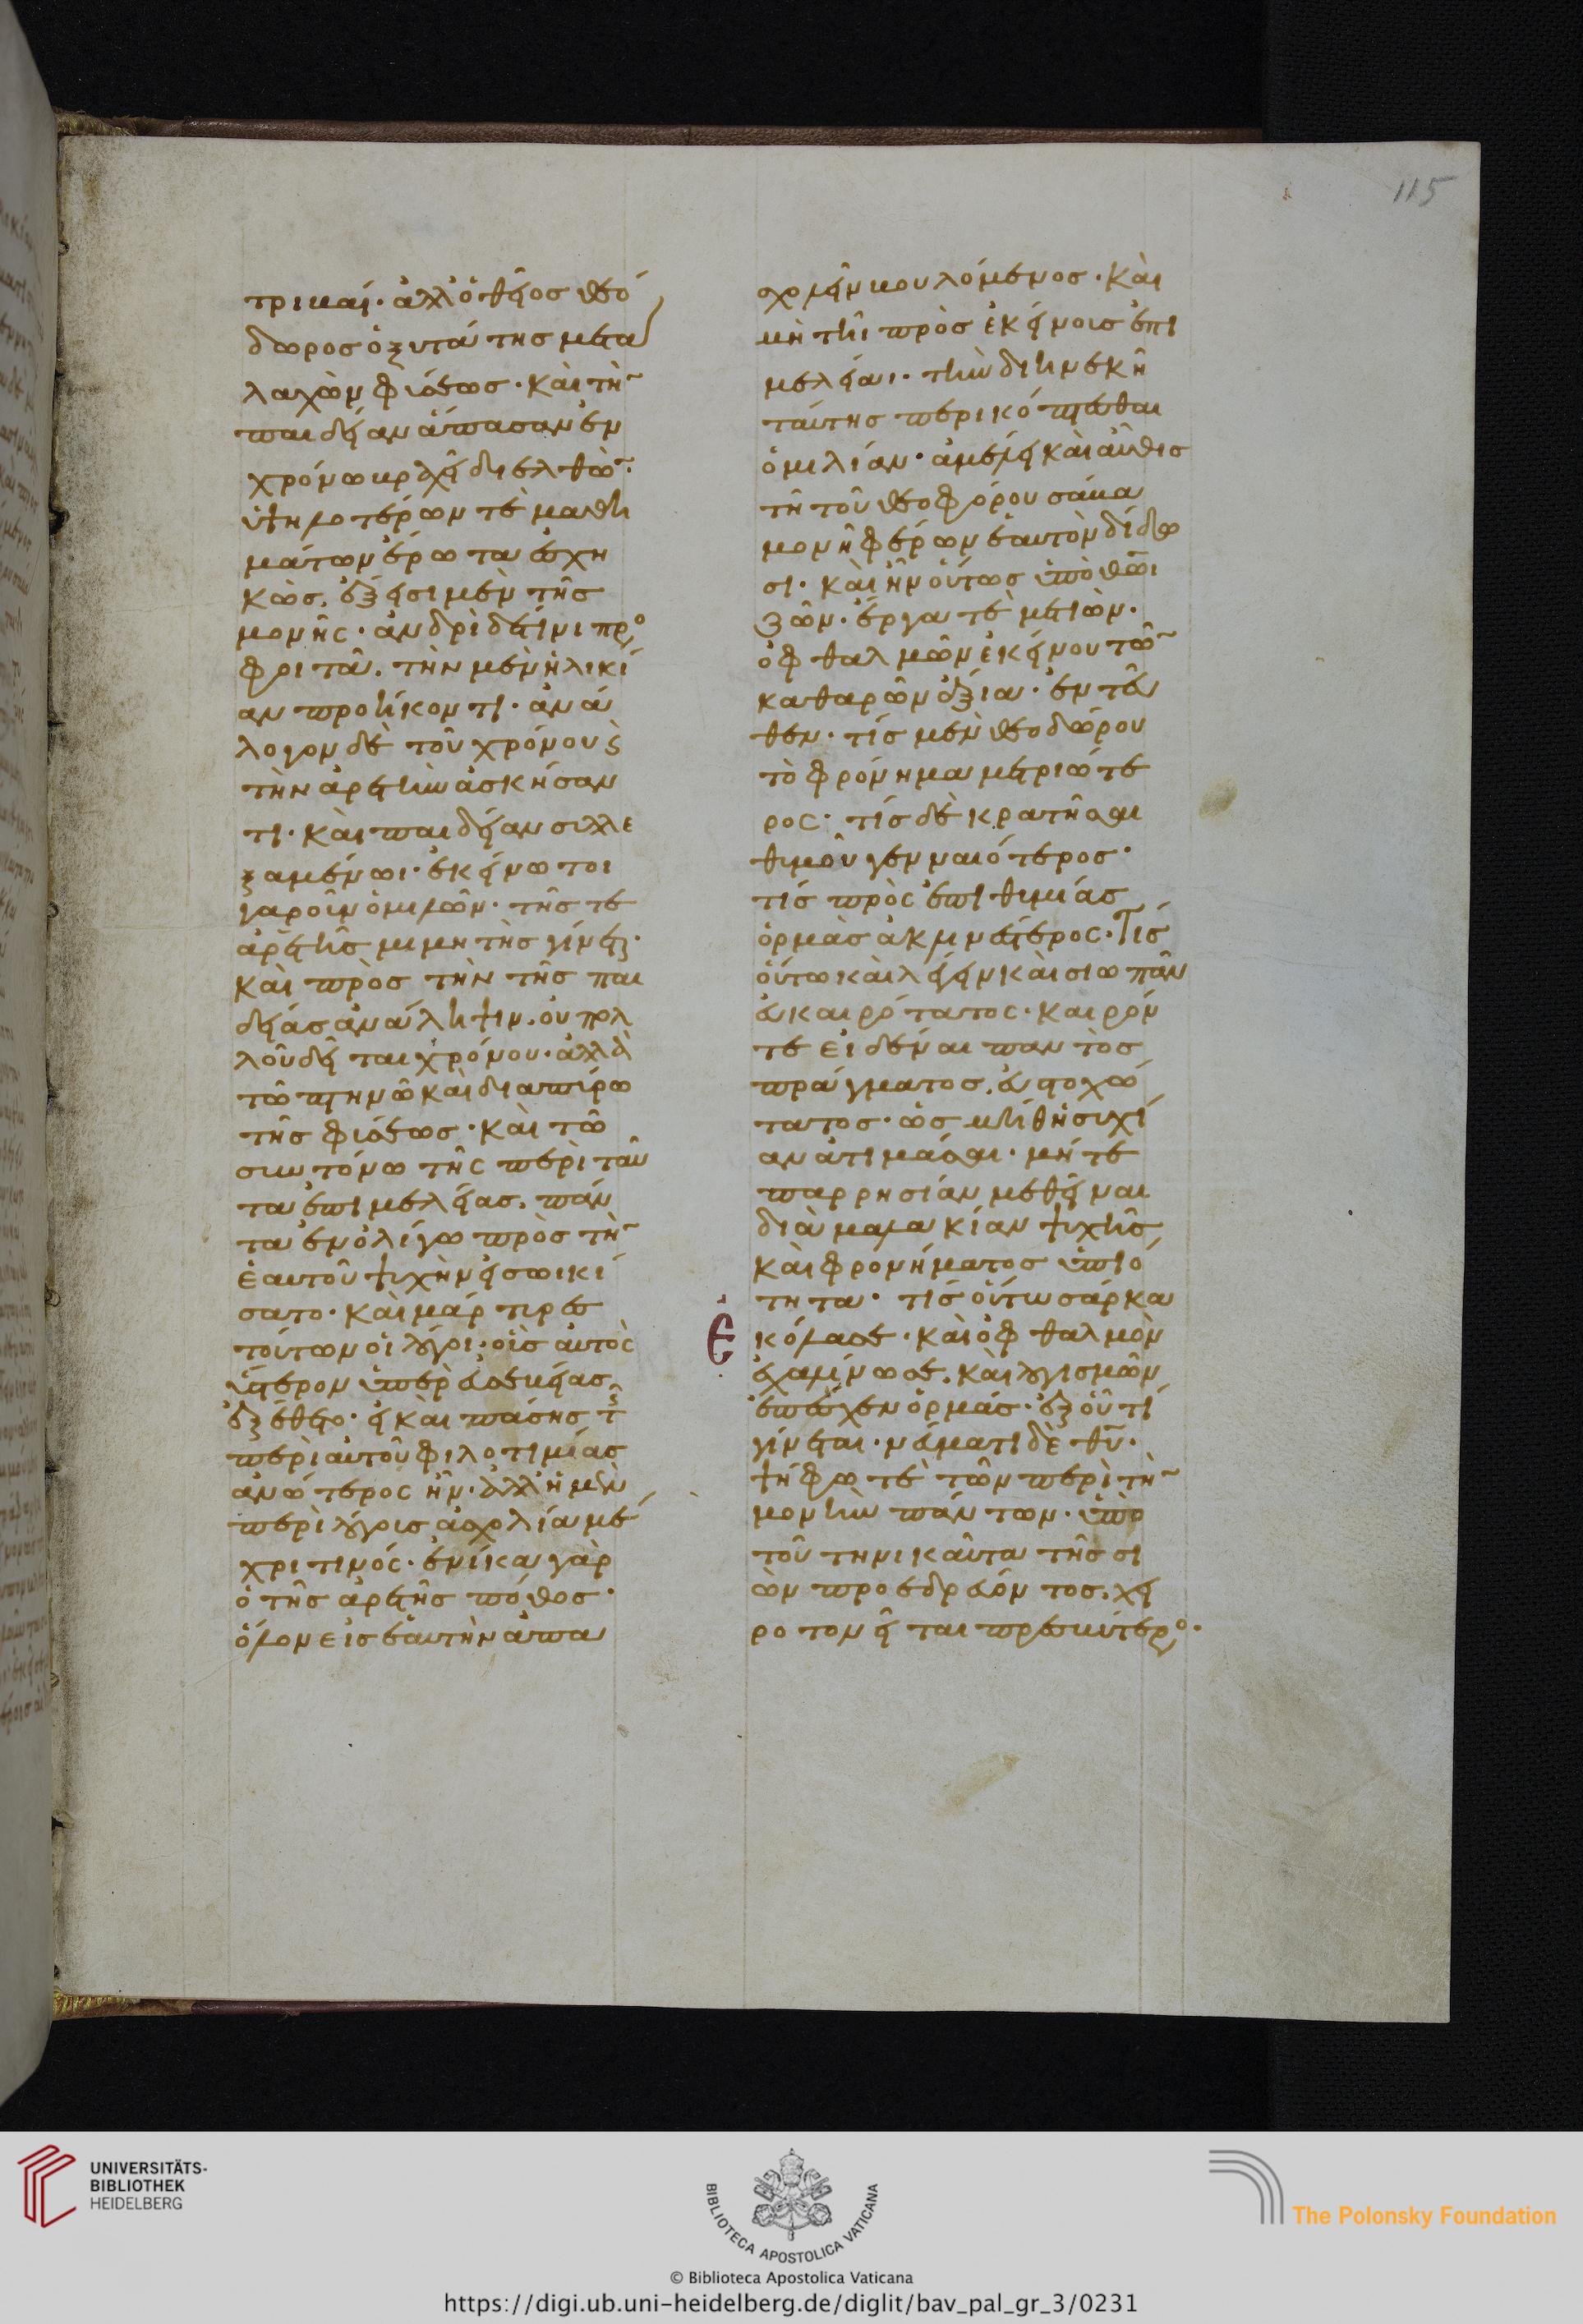 115
τρικαί· ἀλλ' ὁ θεῖος θεό
δωρος ὀξυτάτης μετα
λαχὼν φύσεως· καὶ τὴν
παιδείαν ἅπασαν ἐν
χρόνω βραχεῖ διελθὼν·
ὑψηλοτέρων τὲ μαθη
μάτων ἔρωτα ἐσχη
κὼς, ἔξεισι μὲν τῆς
μονῆς· ἀνδρὶ δέ τινι πρὸς
φοιτᾶ. τὴν μὲν ἡλικί
αν προήκοντι· ἀνά
λογον δὲ τοῦ χρόνου ϛ
τὴν ἀρετὴν ἀσκήσαν
τι· καὶ παιδείαν συλλε
ξαμένωι· ἐκείνω τοι
γαροῦν ὁμιλῶν· τῆς τε
ἀρετῆς μιμητὴς γίνεται·
καὶ πρὸς τὴν τῆς παι
δείας ἀνάληψιν. οὐ πολ
λοῦ δεῖται χρόνου· ἀλλὰ
τῶ πτηνῶ καὶ διαπύρω
τῆς φύσεως· καὶ τῶ
συντόνω τῆς περὶ ταῦ
τα ἐπιμελείας. πάν
τα ἐν ὀλίγω πρὸς τὴν
ἑαυτοῦ ψυχὴν εἰσωκί
σατο· καὶ μάρτυρες
τούτων οἱ λόγοι· οἷς αὐτὸς
ὕστερον ὑπὲρ εὐσεβείας
ἐξέθετο· εἰ καὶ πάσης τῆς
περὶ αὐτοῦ φιλοτιμίας
ἀνώτερος ἦν· ἀλλ' ἡ μὲν
περὶ λόγοις ἀσχολία μέ
χρι τινός· ἐνίκα γὰρ
ὁ τῆς ἀρετῆς πόθος·
ὅλον εἰς ἑαυτὴν ἀπα
σχολεῖν βουλόμενος· καὶ
μὴ τῆι πρὸς ἐκείνοις ἐπι
μελείαι. τὴν διηνεκῆ
ταύτης περικόπτεσθαι
ὁμιλίαν· ἀμέλει καὶ αὖθις
τῆ τοῦ θεοφόρου σάβα
μονῆ φέρων ἑαυτὸν δίδω
σι· καὶ ἦν οὕτως ὑπὸ θεῶι
ζῶν· ἔργα τὲ μετιὼν·
ὀφθαλμῶν ἐκείνου τῶν
καθαρῶν ἄξια· ἐντεῦ
θεν· τίς μὲν θεοδώρου
τὸ φρόνημα μετριώτε
ρος· τίς δὲ κρατῆσαι
θυμοῦ γενναιότερος·
τίς πρὸς ἐπιθυμίας
ὁρμὰς ἀκμινέστερος· Τίς
οὕτω καὶ λέγειν καὶ σιωπᾶν
εὐκαιρότατος· καιρόν
τε εἰδέναι παντὸς
πράγματος, εὐστοχώ
τατος· ὡς μήθ' ἡσυχί
αν ἀτιμάσαι· μήτε
παρρησίαν μεθεῖναι
διὰ μαλακίαν ψυχῆς
καὶ φρονήματος ὑπιό
τητα· τίς οὕτω σάρκα
Ἐκόλασε· καὶ ὀφθαλμὸν
ἐχαλίνωσε. καὶ λογισμῶν
ἐπέσχεν ὁρμάς· ἐξ οὗ τί
γίνεται· νεύματι δὲ θυ·
ψήφω τὲ τῶν περὶ τὴν
μονὴν πάντων· ὑπὸ
τοῦ τηνικαῦτα τῆς σι
ὼν προεδρεύοντος. χει
ροτονεῖται πρεσβύτερος·
UNIVERSITÄTS-
BIBLIOTHEK
HEIDELBERG
BIBLIOTECA APOSTOLICA VATICANA
The Polonsky Foundation
© Biblioteca Apostolica Vaticana
https://digi.ub.uni-heidelberg.de/diglit/bav_pal_gr_3/0231